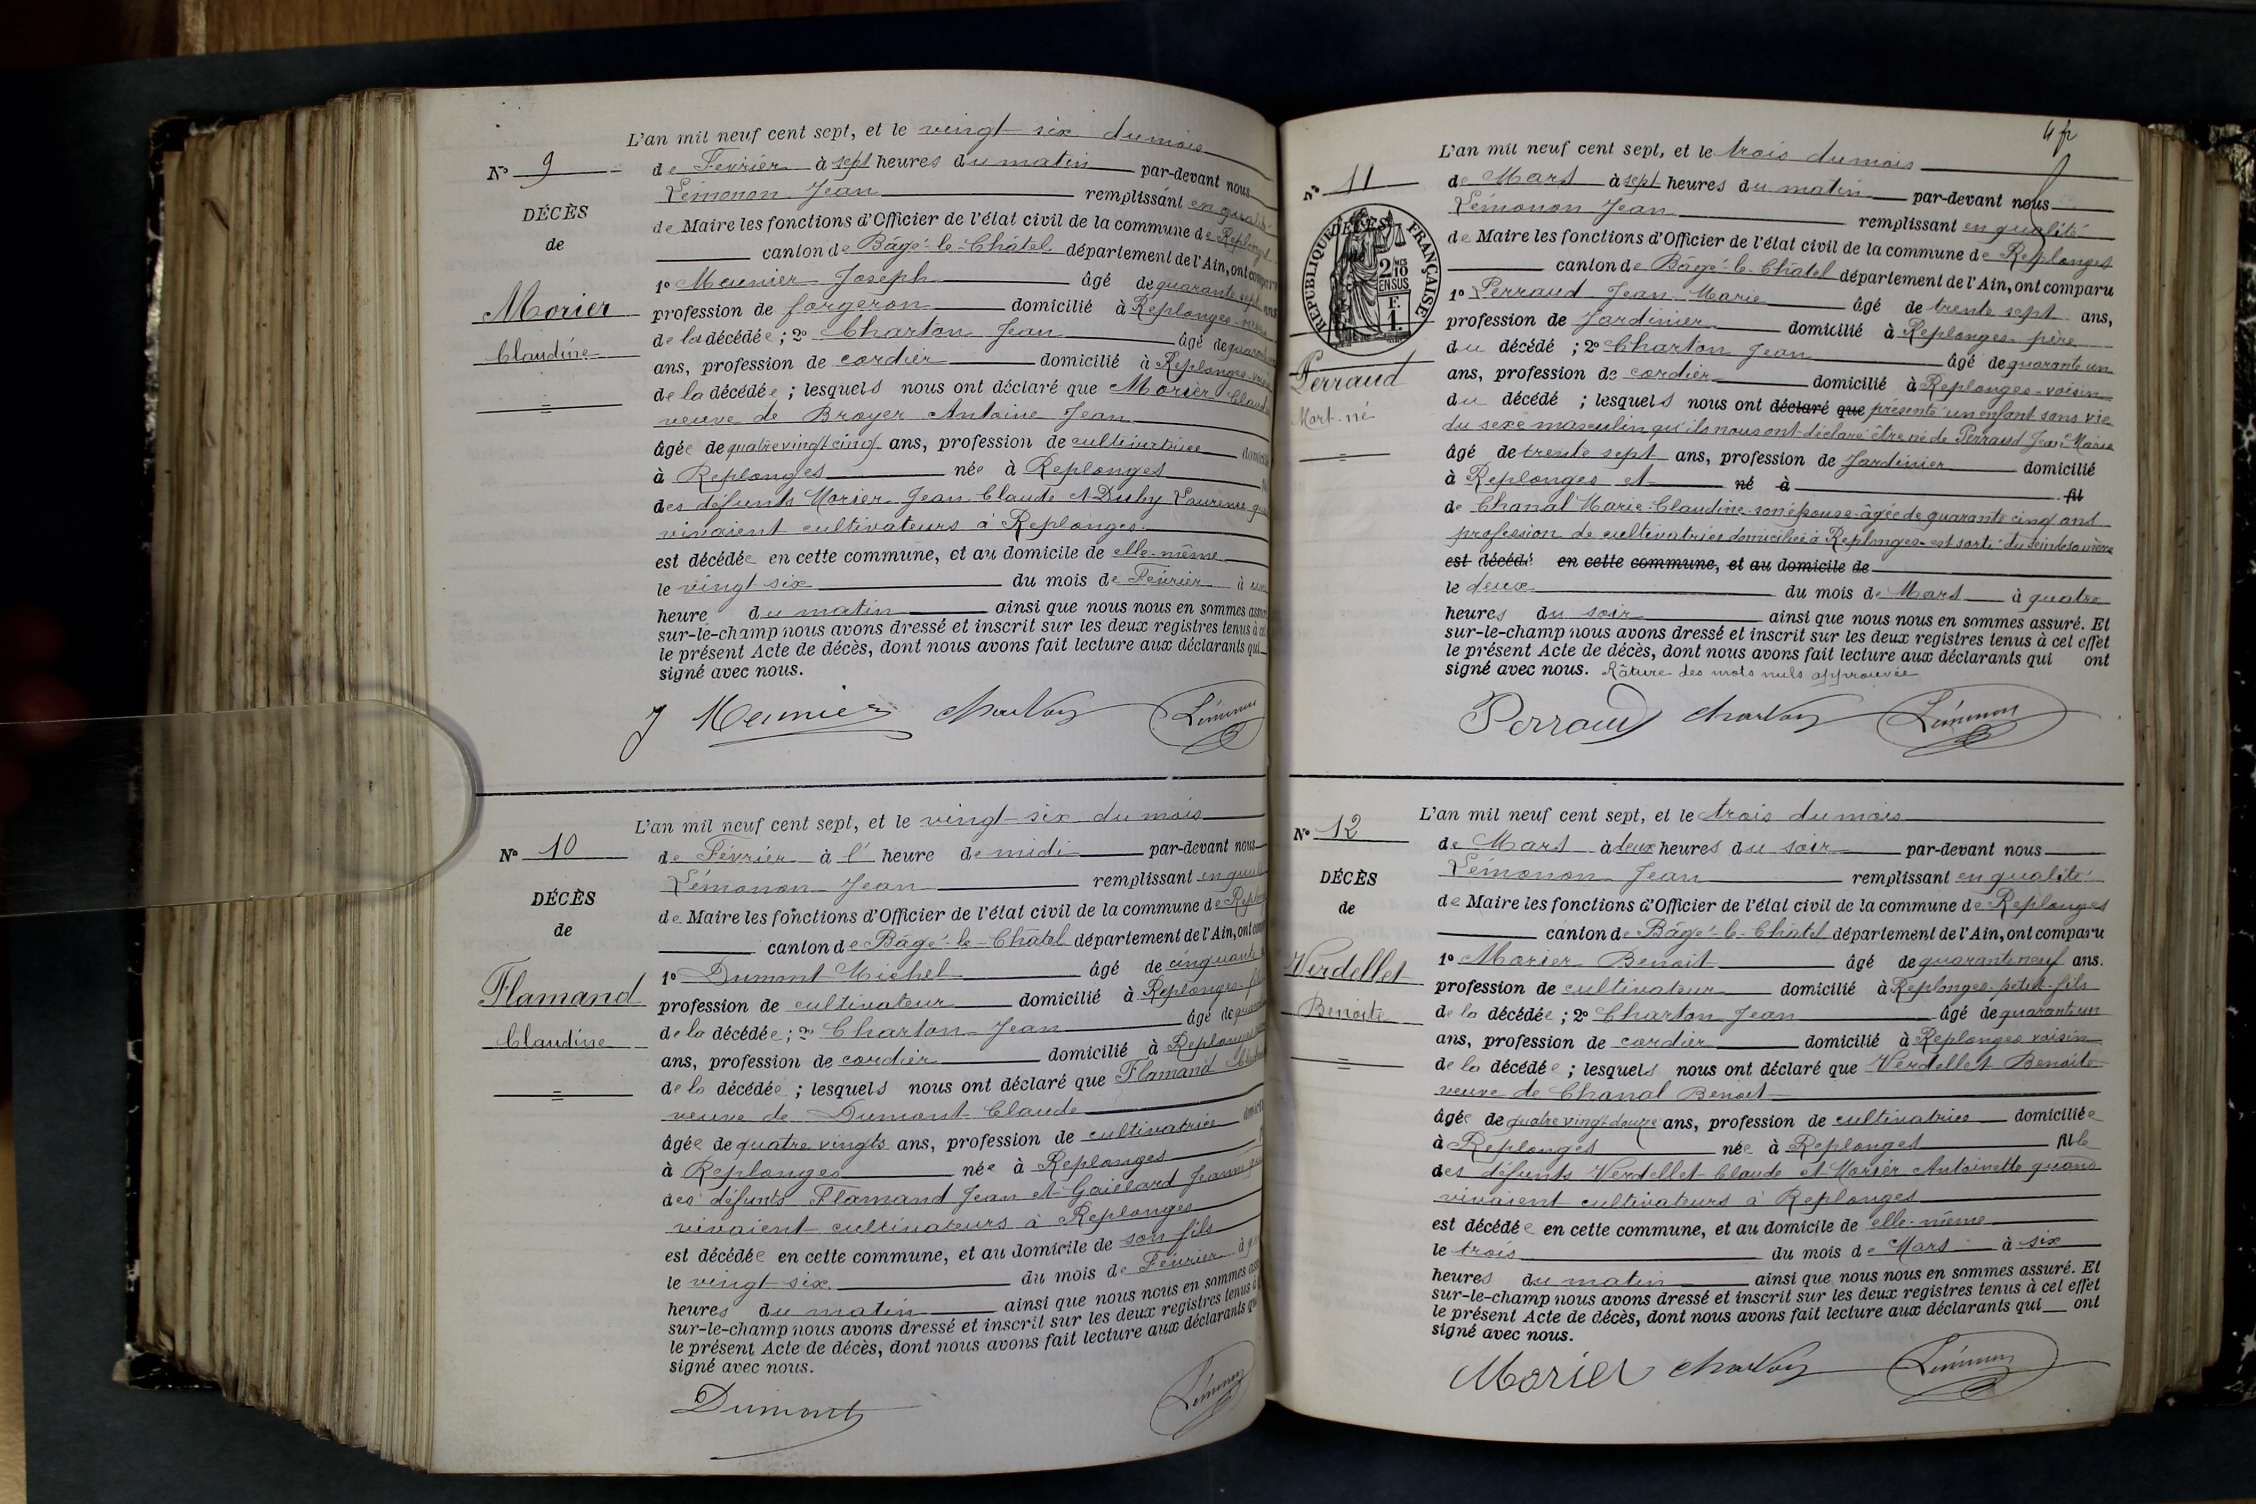 L'an mil neuf cent sept, et le vingt six du mois
N° 9
de Février à sept heures du matin par-devant nous
Lémonon Jean remplissant en qualité
DÉCÈS
de Maire les fonctions d'Officier de l'état civil de la commune de Replonges
de
canton de Bâgé-le-Châtel département de l'Ain, ont comparu
1° Meunier Joseph âgé de quarante sept ans
Morier
profession de forgeron domicilié à Replonges
Claudine
de la décédée ; 2° Charton Jean âgé de
ans, profession de cordier domicilié à Replonges
de la décédée ; lesquels nous ont déclaré que Morier
veuve de Broyer Antoine Jean
âgée de quatre vingt cinq ans, profession de cultivatrice
à Replonges née à Replonges
des défunts Morier Jean Claude et Duby
vivaient cultivateurs à Replonges
est décédée en cette commune, et au domicile de elle-même
le vingt six du mois de Février à
heure du matin ainsi que nous nous en sommes
sur-le-champ nous avons dressé et inscrit sur les deux registres tenus à
le présent Acte de décès, dont nous avons fait lecture aux déclarants qui
signé avec nous.
J Meunier Charton Lémonon
L'an mil neuf cent sept, et le vingt six du mois
N° 10
de Février à l' heure de midi par-devant nous
Lémonon Jean remplissant en
DÉCÈS
de Maire les fonctions d'Officier de l'état civil de la commune de
de
canton de Bâgé-le-Châtel département de l'Ain, ont
1° Dumont Michel âgé de cinquante
Flamand
profession de cultivateur domicilié à Replonges
Claudine
de la décédée ; 2° Charton Jean âgé de
ans, profession de cordier domicilié à Replonges
de la décédée ; lesquels nous ont déclaré que Flamand
veuve de Dumont Claude
âgée de quatre vingts ans, profession de cultivatrice
à Replonges née à Replonges
des défunts Flamand Jean et Gaillard Jeanne
vivaient cultivateurs à Replonges
est décédée en cette commune, et au domicile de son fils
le vingt six du mois de Février à
heures du matin ainsi que nous nous en sommes
sur-le-champ nous avons dressé et inscrit sur les deux registres tenus à
le présent Acte de décès, dont nous avons fait lecture aux déclarants
signé avec nous.
Dumont Lémonon
L'an mil neuf cent sept, et le trois du mois
N° 11
de Mars à sept heures du matin par-devant nous
Lémonon Jean remplissant en qualité
DÉCÈS
RÉPUBLIQUE FRANÇAISE
de Maire les fonctions d'Officier de l'état civil de la commune de Replonges
canton de Bâgé-le-Châtel département de l'Ain, ont comparu
2 MES 10 EN SUS
F. 1.
1° Perraud Jean Marie âgé de trente sept ans,
profession de Jardinier domicilié à Replonges père
du décédé ; 2° Charton Jean âgé de quarante un
Perraud
ans, profession de cordier domicilié à Replonges-voisin
Mort-né
du décédé ; lesquels nous ont déclaré que présenté un enfant sans vie
du sexe masculin qu'ils nous ont déclaré être né de Perraud Jean Marie
âgé de trente sept ans, profession de Jardinier domicilié
à Replonges et né à fil
de Chanal Marie-Claudine son épouse âgée de quarante cinq ans
profession de cultivatrice domiciliée à Replonges est sorti du sein de sa mère
est décédé en cette commune, et au domicile de
le deux du mois de Mars à quatre
heures du soir ainsi que nous nous en sommes assuré. Et
sur-le-champ nous avons dressé et inscrit sur les deux registres tenus à cet effet
le présent Acte de décès, dont nous avons fait lecture aux déclarants qui ont
signé avec nous. Râture des mots nuls approuvée
Perraud Charton Lémonon
L'an mil neuf cent sept, et le trois du mois
N° 12
de Mars à deux heures du soir par-devant nous
Lémonon Jean remplissant en qualité
DÉCÈS
de Maire les fonctions d'Officier de l'état civil de la commune de Replonges
de
canton de Bâgé-le-Châtel département de l'Ain, ont comparu
1° Morier Benoit âgé de quarante neuf ans.
Verdellet
profession de cultivateur domicilié à Replonges petit-fils
Benoite
de la décédée ; 2° Charton Jean âgé de quarante un
ans, profession de cordier domicilié à Replonges voisin
de la décédée ; lesquels nous ont déclaré que Verdellet Benoite
veuve de Chanal Benoit
âgée de quatre vingt douze ans, profession de cultivatrice domiciliée
à Replonges née à Replonges fille
des défunts Verdellet Claude et Morier Antoinette quand
vivaient cultivateurs à Replonges
est décédée en cette commune, et au domicile de elle-même
le trois du mois de Mars à six
heures du matin ainsi que nous nous en sommes assuré. Et
sur-le-champ nous avons dressé et inscrit sur les deux registres tenus à cet effet
le présent Acte de décès, dont nous avons fait lecture aux déclarants qui ont
signé avec nous.
Morier Charton Lémonon